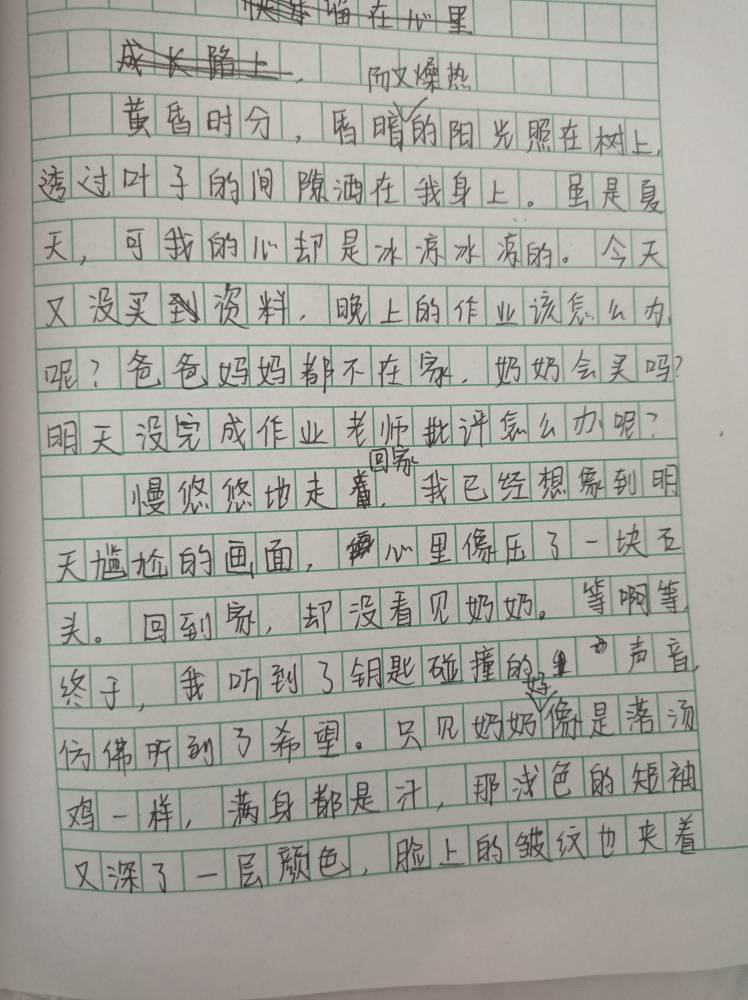 快乐留在心里
成长路上，
而又燥热
黄昏时分，昏暗的阳光照在树上，
透过叶子的间隙洒在我身上。虽是夏
天，可我的心却是冰凉冰凉的。今天
又没买到资料，晚上的作业该怎么办
呢？爸爸妈妈都不在家，奶奶会买吗？
明天没完成作业老师批评怎么办呢？
回家
慢悠悠地走着，我已经想象到明
天尴尬的画面，心里像压了一块石
头。回到家，却没看见奶奶。等啊等，
终于，我听到了钥匙碰撞的声音，
仿佛听到了希望。只见奶奶好像是落汤
鸡一样，满身都是汗，那浅色的短袖
又深了一层颜色，脸上的皱纹也夹着